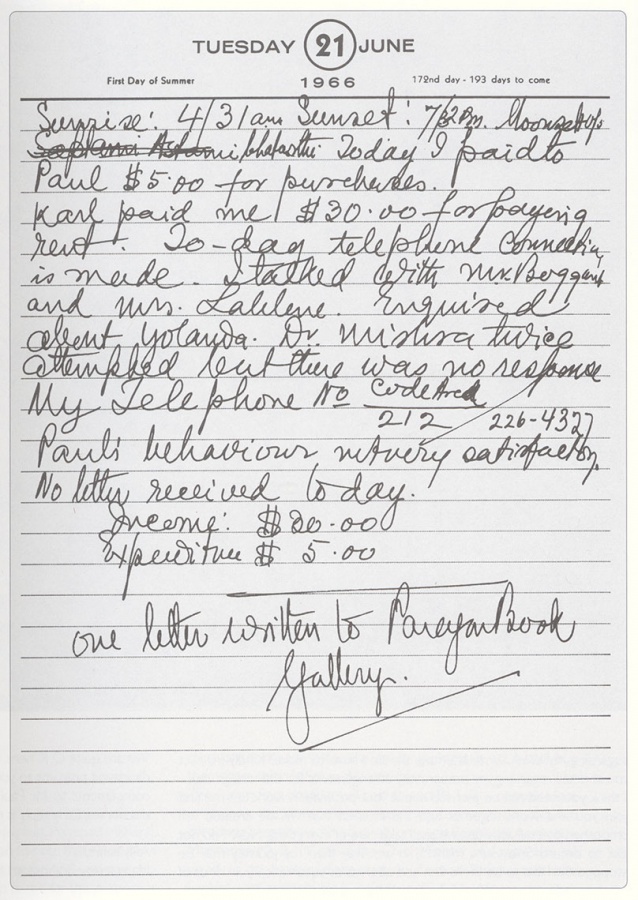 TUESDAY 21 JUNE
First Day of Summer 1966 172nd day - 193 days to come
Sunrise: 4/31 am Sunset: 7/32 P.M.
Today I paid to
Paul $5.00 for purcheses.
Karl paid me $30.00 for paying
rent. To-day telephone connection
is made. I talked with Mr.
and Mrs. Enquired
about Yolanda. Dr. Mishra twice
attempted but there was no response
My Telephone No Code Area
212 226-4327
Paul's behaviour not very satisfactory.
No letter received to day.
Income: $ 30.00
Expenditure $ 5.00
one letter written to Book
Gallery.